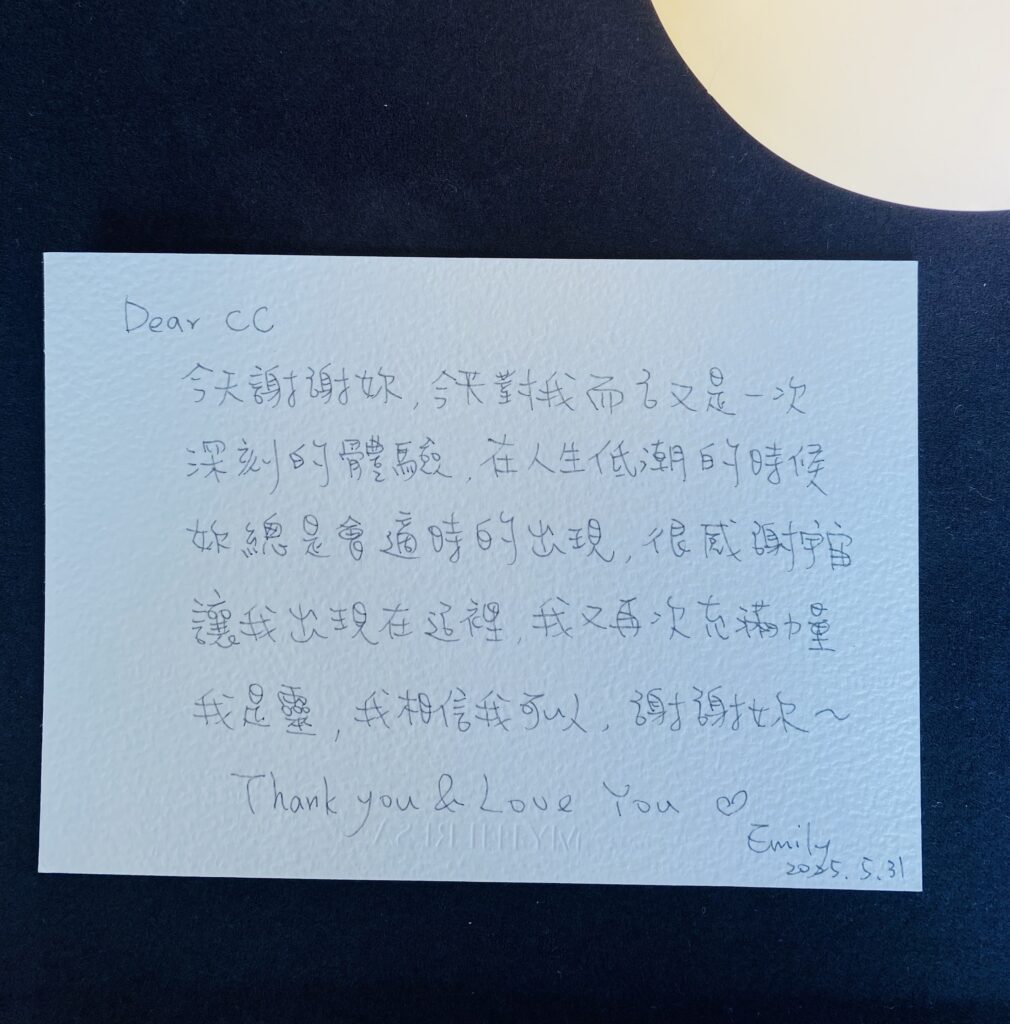 Dear CC
今天謝謝妳，今天對我而言又是一次
深刻的體驗，在人生低潮的時候
妳總是會適時的出現，很感謝宇宙
讓我出現在這裡，我又再次充滿力量
我是靈，我相信我可以，謝謝妳～
Thank you & Love You ♡
MYTHERESA
Emily
2025.5.31